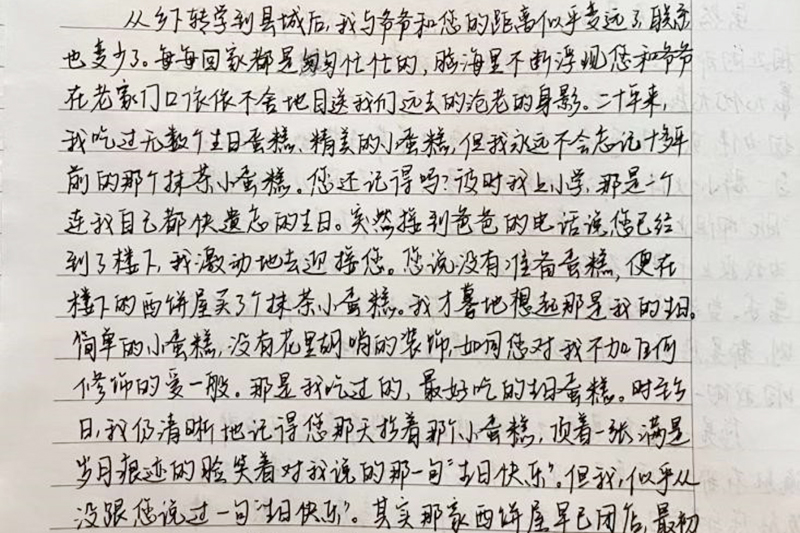 从乡下转学到县城后，我与爷爷和您的距离似乎变远了，联系
也变少了。每每回家都是匆匆忙忙的，脑海里不断浮现您和爷爷
在老家门口依依不舍地目送我们远去的沧老的身影。二十年来，
我吃过无数个生日蛋糕、精美的小蛋糕，但我永远不会忘记十多年
前的那个抹茶小蛋糕。您还记得吗？彼时我上小学，那是一个
连我自己都快遗忘的生日。突然接到爸爸的电话说您已经
到了楼下，我激动地去迎接您。您说没有准备蛋糕，便在
楼下的西饼屋买了个抹茶小蛋糕。我才蓦地想起那是我的生日。
简单的小蛋糕，没有花里胡哨的装饰，如同您对我不加任何
修饰的爱一般。那是我吃过的，最好吃的生日蛋糕。时至今
日，我仍清晰地记得您那天拎着那个小蛋糕，顶着一张满是
岁月痕迹的脸笑着对我说的那一句“生日快乐”。但我，似乎从
没跟您说过一句“生日快乐”。其实那家西饼屋早已闭店，最初